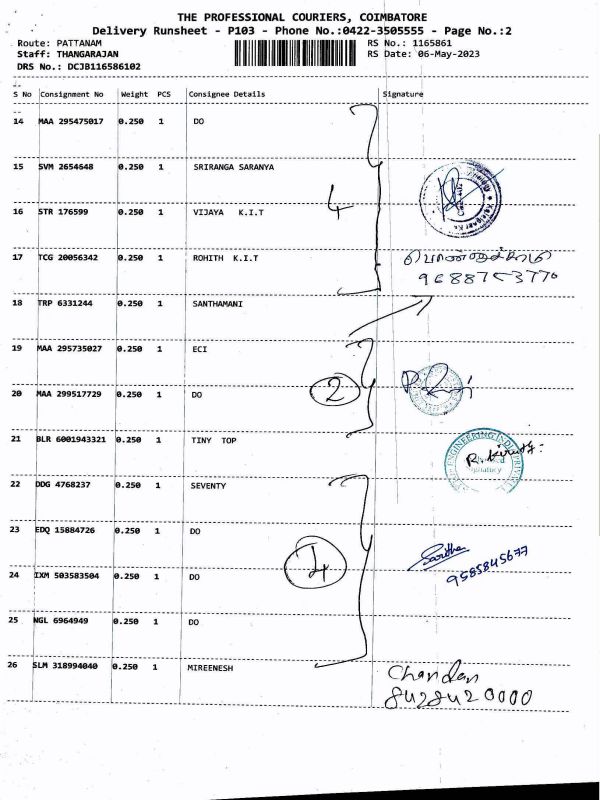 THE PROFESSIONAL COURIERS, COIMBATORE
Delivery Runsheet - P103 - Phone No.:0422-3505555 - Page No.:2
Route: PATTANAM RS No.: 1165861
Staff: THANGARAJAN RS Date: 06-May-2023
DRS No.: DCJB116586102
S No Consignment No Weight PCS Consignee Details Signature
14 MAA 295475017 0.250 1 DO
15 SVM 2654648 0.250 1 SRIRANGA SARANYA
16 STR 176599 0.250 1 VIJAYA K.I.T 4
17 TCG 20056342 0.250 1 ROHITH K.I.T
18 TRP 6331244 0.250 1 SANTHAMANI
19 MAA 295735027 0.250 1 ECI
20 MAA 299517729 0.250 1 DO 2
21 BLR 6001943321 0.250 1 TINY TOP
ENGINEERING
22 DDG 4768237 0.250 1 SEVENTY
23 EDQ 15884726 0.250 1 DO
Saritha
24 IXM 503583504 0.250 1 DO 9585845677
25 NGL 6964949 0.250 1 DO
26 SLM 318994040 0.250 1 MIREENESH Chandan
8428420000